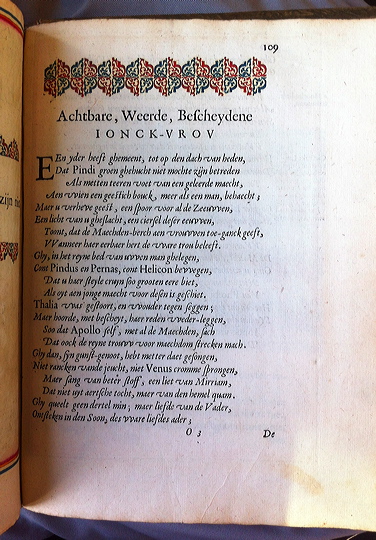 109
Achtbare, Weerde, Bescheydene
IONCK-VROV
EEn yder heeft ghemeent, tot op den dach van heden,
Dat Pindi groen ghebucht niet mochte zijn betreden
Als metten teeren voet van een geleerde maecht,
Aen wien een geestich bouck, meer als een man, behaecht;
Maer u verheve geest, een spoor voor al de Zeeuwen,
Een licht van u gheslacht, een ciersel deser eeuwen,
Toont, dat de Maechden-berch aen vrouwen toe-ganck geeft,
VVanneer haer eerbaer hert de ware trou beleeft.
Ghy, in het reyne bed van uwen man ghelegen,
Cont Pindus en Pernas, cont Helicon bewegen,
Dat u haer steyle cruyn soo grooten eere biet,
Als oyt aen jonge maecht voor desen is geschiet.
Thalia was gestoort, en wouder tegen seggen;
Maer hoorde, met bescheyt, haer reden weder-leggen,
Soo dat Apollo self, met al de Maechden, sach
Dat oock de reyne trouw voor maechdom strecken mach.
Ghy dan, sijn gunst-genoot, hebt metter daet gesongen,
Niet rancken vande jeucht, niet Venus cromme sprongen,
Maer sang van beter stoff, een liet van Mirriam,
Dat niet uyt aertsche tocht, maer van den hemel quam.
Ghy queelt geen dertel min; maer liefde van de Vader,
Ontsteken in den Soon, des ware liefdes ader;
O 3
De
zijn